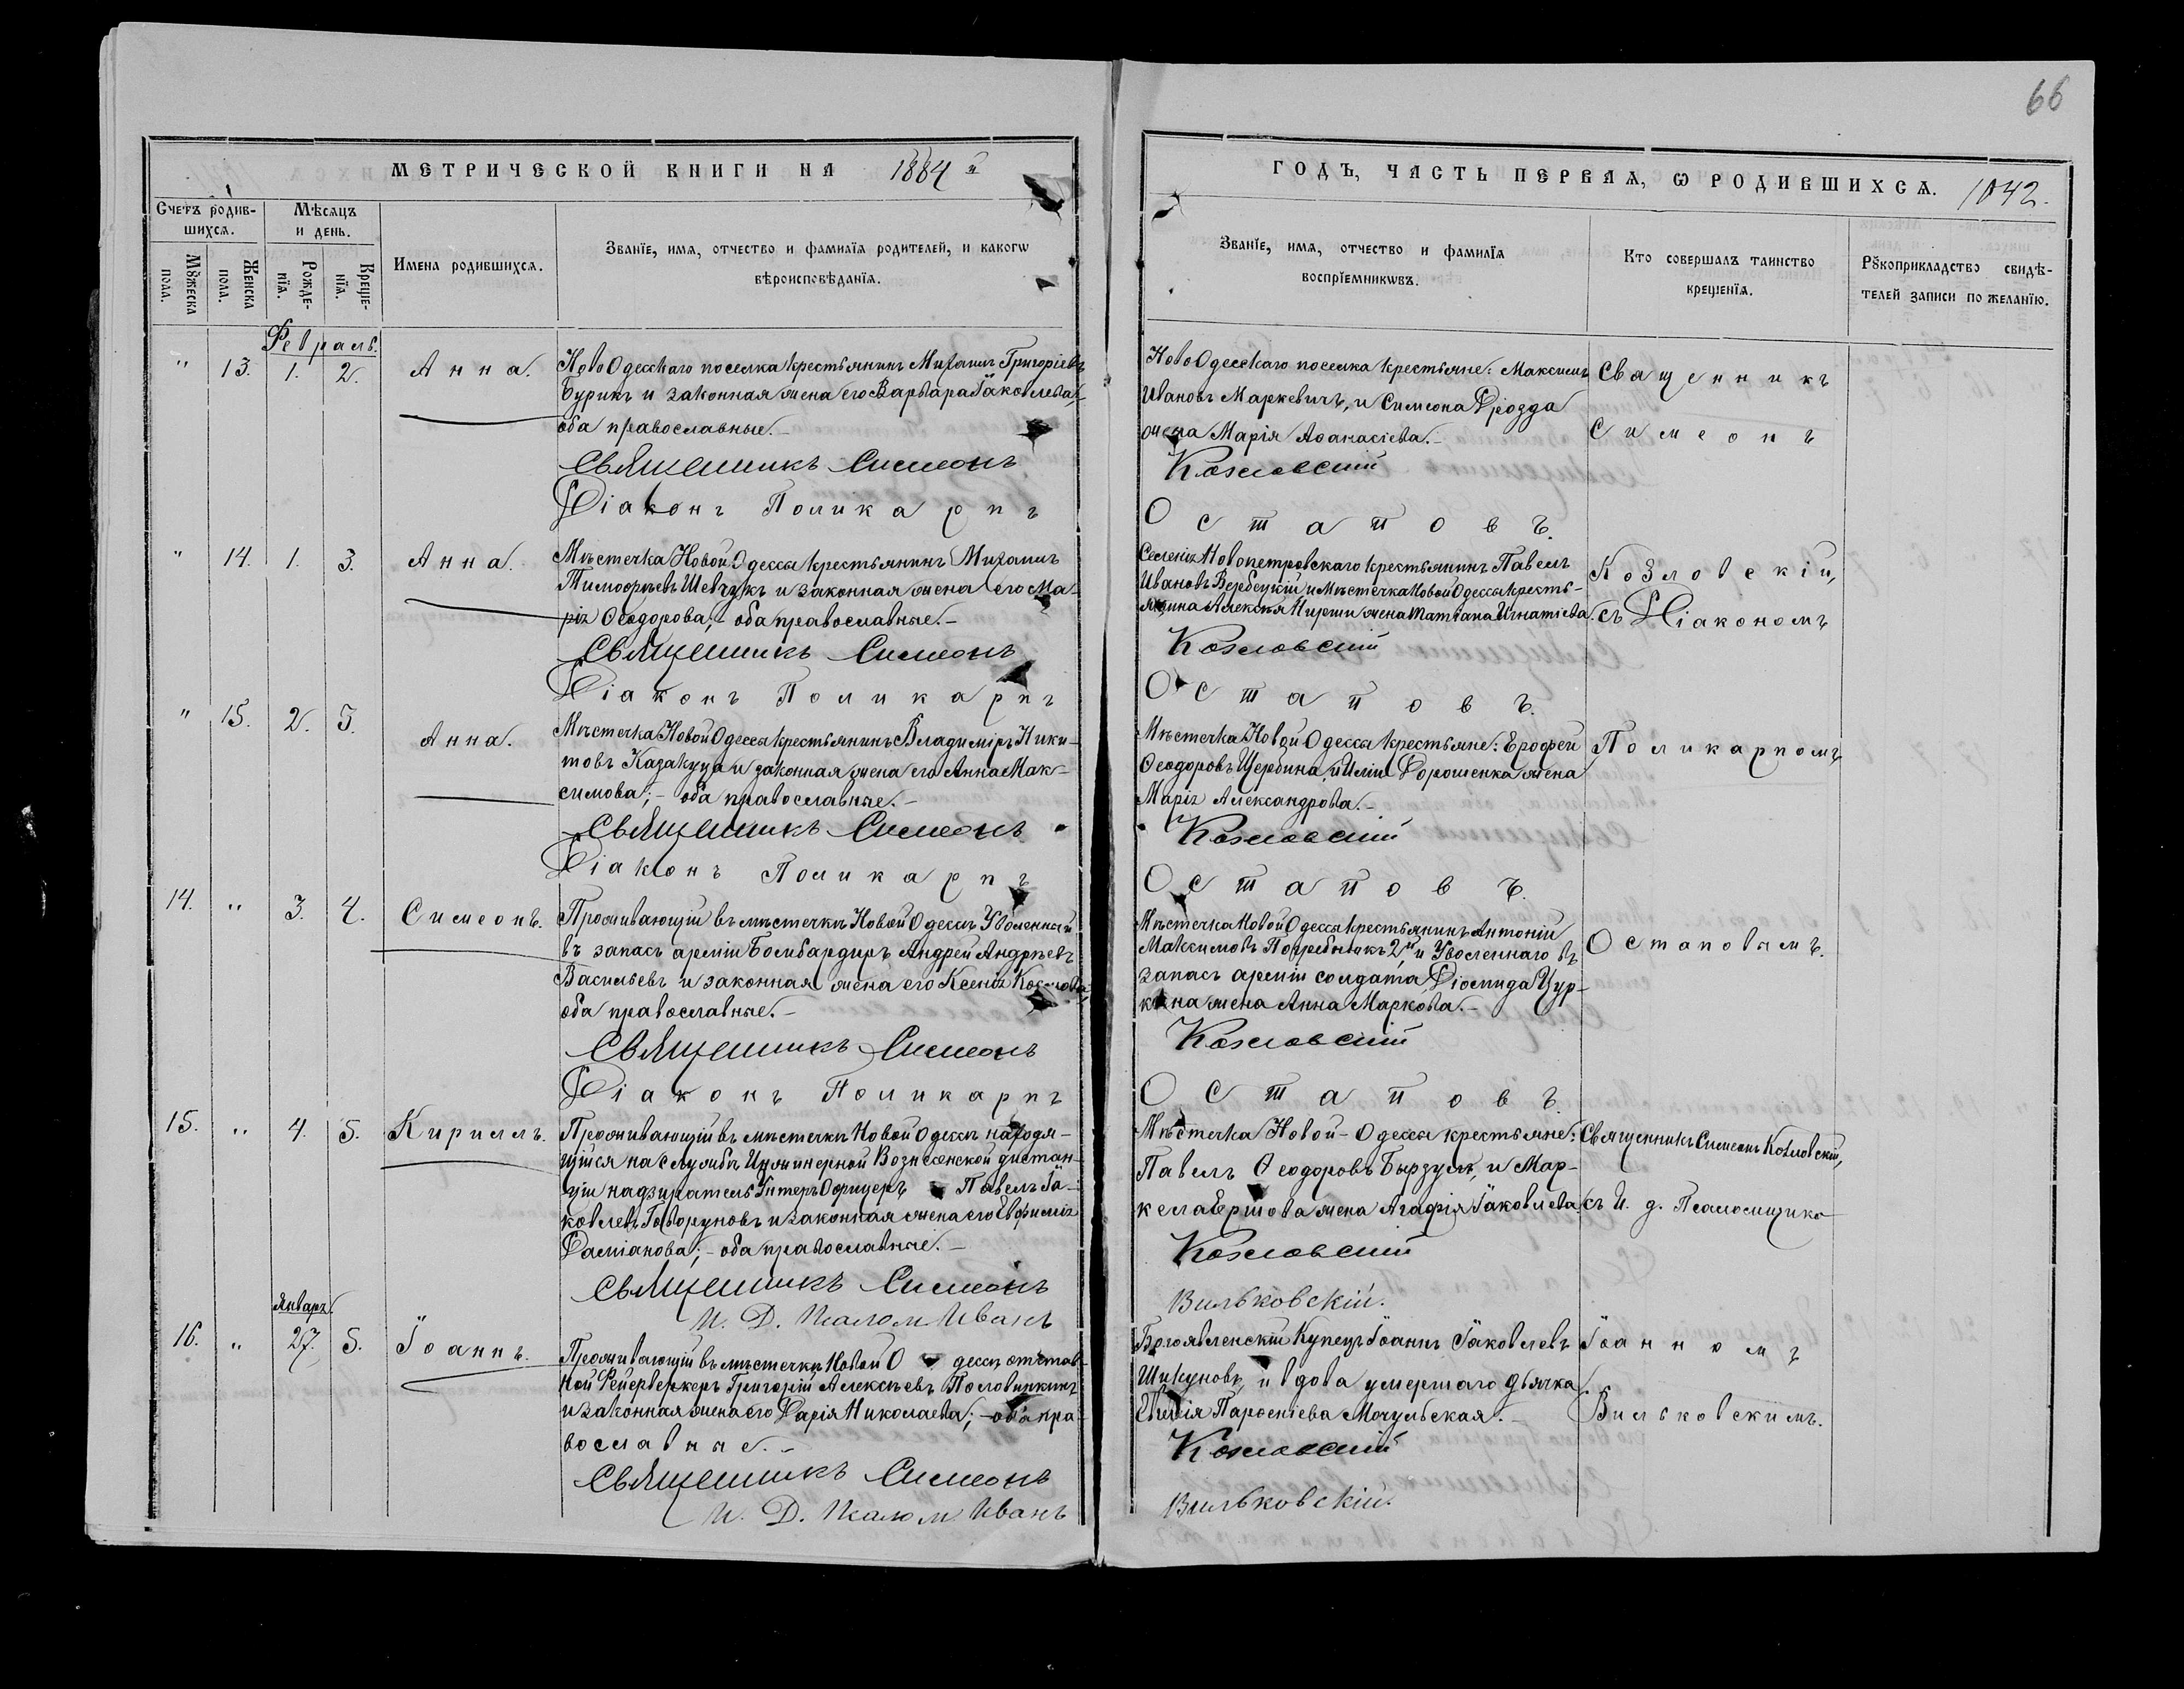 66
МЕТРИЧЕСКОЙ КНИГИ НА 1884 й
ГОДЪ, ЧАСТЬ ПЕРВАѦ, Ѡ РОДИВШИХСѦ. 1042.
Счетъ родив-
шихсѧ.
Мѣсѧцъ
и день.
Мꙋжеска
пола.
Женска
пола.
Рожде-
нїѧ.
Креще-
нїѧ.
Имена родившихсѧ.
Званїе, имѧ, отчество и фамилїѧ родителей, и какогѡ
вѣроисповѣданїѧ.
Званїе, имѧ, отчество и фамилїѧ
воспрїемникѡвъ.
Кто совершалъ таинство
крещенїѧ.
Рꙋкоприкладство свидѣ-
телей записи по желанїю.
Февраль.
" 13. 1. 2. Анна.
НовоОдесскаго поселка крестьянинъ Михаилъ Григоріевъ
Бурикъ и законная жена его Варвара Іаковлева,
оба православные.
Священникъ Симеонъ
Діаконъ Поликарпъ
НовоОдесскаго поселка крестьяне: Максимъ
Ивановъ Маркевичъ, и Симеона Дрозда
жена Марія Аѳанасіева.
Козловскій
Остаповъ.
Священникъ
Симеонъ
" 14. 1. 3. Анна.
Мѣстечка Новой Одессы крестьянинъ Михаилъ
Тимофѣевъ Шевчукъ и законная жена его Ма-
рія Ѳеодорова; - оба православные.
Священникъ Симеонъ
Діаконъ Поликарпъ
Селенія Новопетровскаго крестьянинъ Павелъ
Ивановъ Вербецкій и Мѣстечка Новой Одессы кресть-
янина Алексѣя жена Татіана Игнатіева.
Козловскій
Остаповъ.
Козловскій,
съ Діакономъ
" 15. 2. 5. Анна.
Мѣстечка Новой Одессы крестьянинъ Владиміръ Ники-
товъ Казакуца и законная жена его Анна Мак-
симова; - оба православные.
Священникъ Симеонъ
Діаконъ Поликарпъ
Мѣстечка Новой Одессы крестьяне: Ерофей
Ѳеодоровъ Щербина, и Иліи Дорошенка жена
Марія Александрова.
Козловскій
Остаповъ.
Поликарпомъ
14. " 3. 4. Симеонъ.
Проживающій въ мѣстечкѣ Новой Одессѣ Уволенный
въ запасъ арміи Бомбардиръ Андрей Андрѣевъ
Васильевъ и законная жена его Ксенія Космова,
оба православные.
Священникъ Симеонъ
Діаконъ Поликарпъ
Мѣстечка Новой Одессы крестьянинъ Антоній
Максимовъ Погребнякъ 2й и Уволеннаго въ
запасъ арміи солдата Діомида Цур-
кана жена Анна Маркова.
Козловскій
Остаповъ.
Остаповымъ.
15. " 4. 5. Кириллъ.
Проживающій въ мѣстечкѣ Новой Одессѣ находя-
щійся на службѣ Инжинерной Вознесенской дистан-
ціи надзиратель Унтеръ Офицеръ Павелъ Іа-
ковлевъ Говоруновъ и законная жена его Евфимія
Даміанова; - оба православные.
Священникъ Симеонъ
И. Д. Псалом. Иванъ
Мѣстечка Новой-Одессы крестьяне:
Павелъ Ѳеодоровъ Бырзулъ, и Мар-
кела Ершова жена Агафія Іаковлева.
Козловскій
Вильковскій.
Священникъ Симеонъ Козловскій,
съ И. д. Псаломщика
Январь.
16. " 27. 5. Іоаннъ.
Проживающій въ мѣстечкѣ Новой О десѣ отстав-
ной Фейерверкеръ Григорій Алексѣевъ Половинкинъ
и законная жена его Дарія Николаева; - оба пра-
вославные.
Священникъ Симеонъ
И. Д. Псалом. Иванъ
Богоявленскій Купецъ Іоаннъ Іаковлевъ
Шикуновъ, и вдова умершаго дьячка
Евгенія Парѳеніева Мочульская.
Козловскій
Вильковскій.
Іоанномъ
Вильковскимъ.